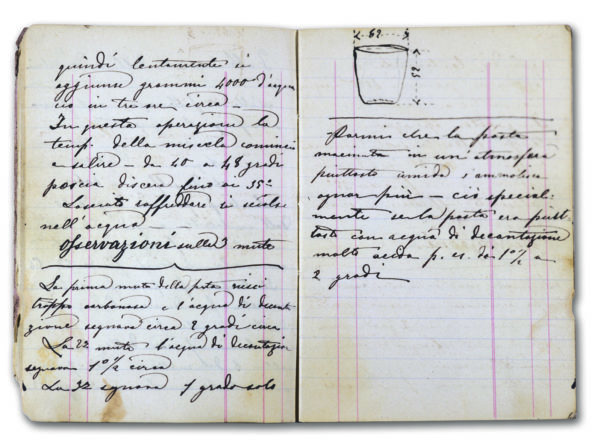 quindi lentamente si
aggiunse grammi 4000 d'acqua
in tre ore circa -
In questa operazione la
temp. della miscela cominciò
a salire - da 40 a 48 gradi
poscia discese fino ai 35°
Lasciato raffreddare si
nell'acqua - -
Osservazioni sulle mute
La prima muta della pasta riuscì
troppo carbonosa e l'acqua di decanta
zione segnava circa 2 gradi circa
La 2a muta l'acqua di decantazion
segnava 1 0/2 circa
La 3a segnava 1 grado solo
52
Parmi che la pasta
macinata in un'atmosfera
piuttosto umida s'ammollisca
ognor più - ciò special-
mente se la pasta era piut
tosto con acqua di decantazione
molto acida p. es. da 1 0/2 a
2 gradi